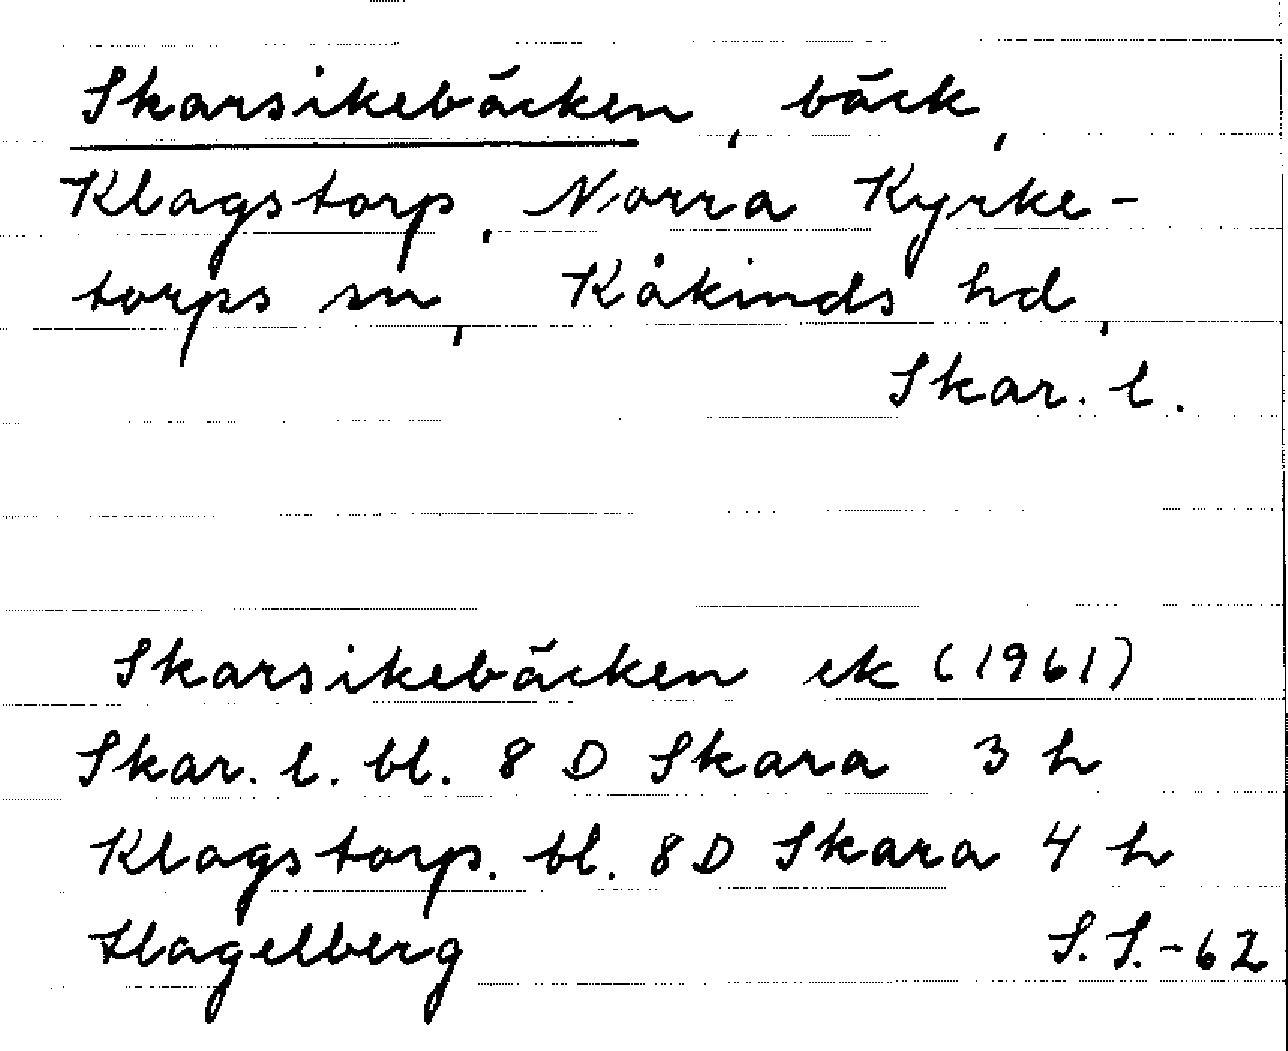 Skarsikebäcken, bäck,
Klagstorp, Norra Kyrke-
torps sn, Kåkinds hd,
Skar. l.
Skarsikebäcken ek (1961)
Skar. l. bl. 8 D Skara 3 h
Klagstorp. bl. 8 D Skara 4 h
Hagelberg S.S.-62